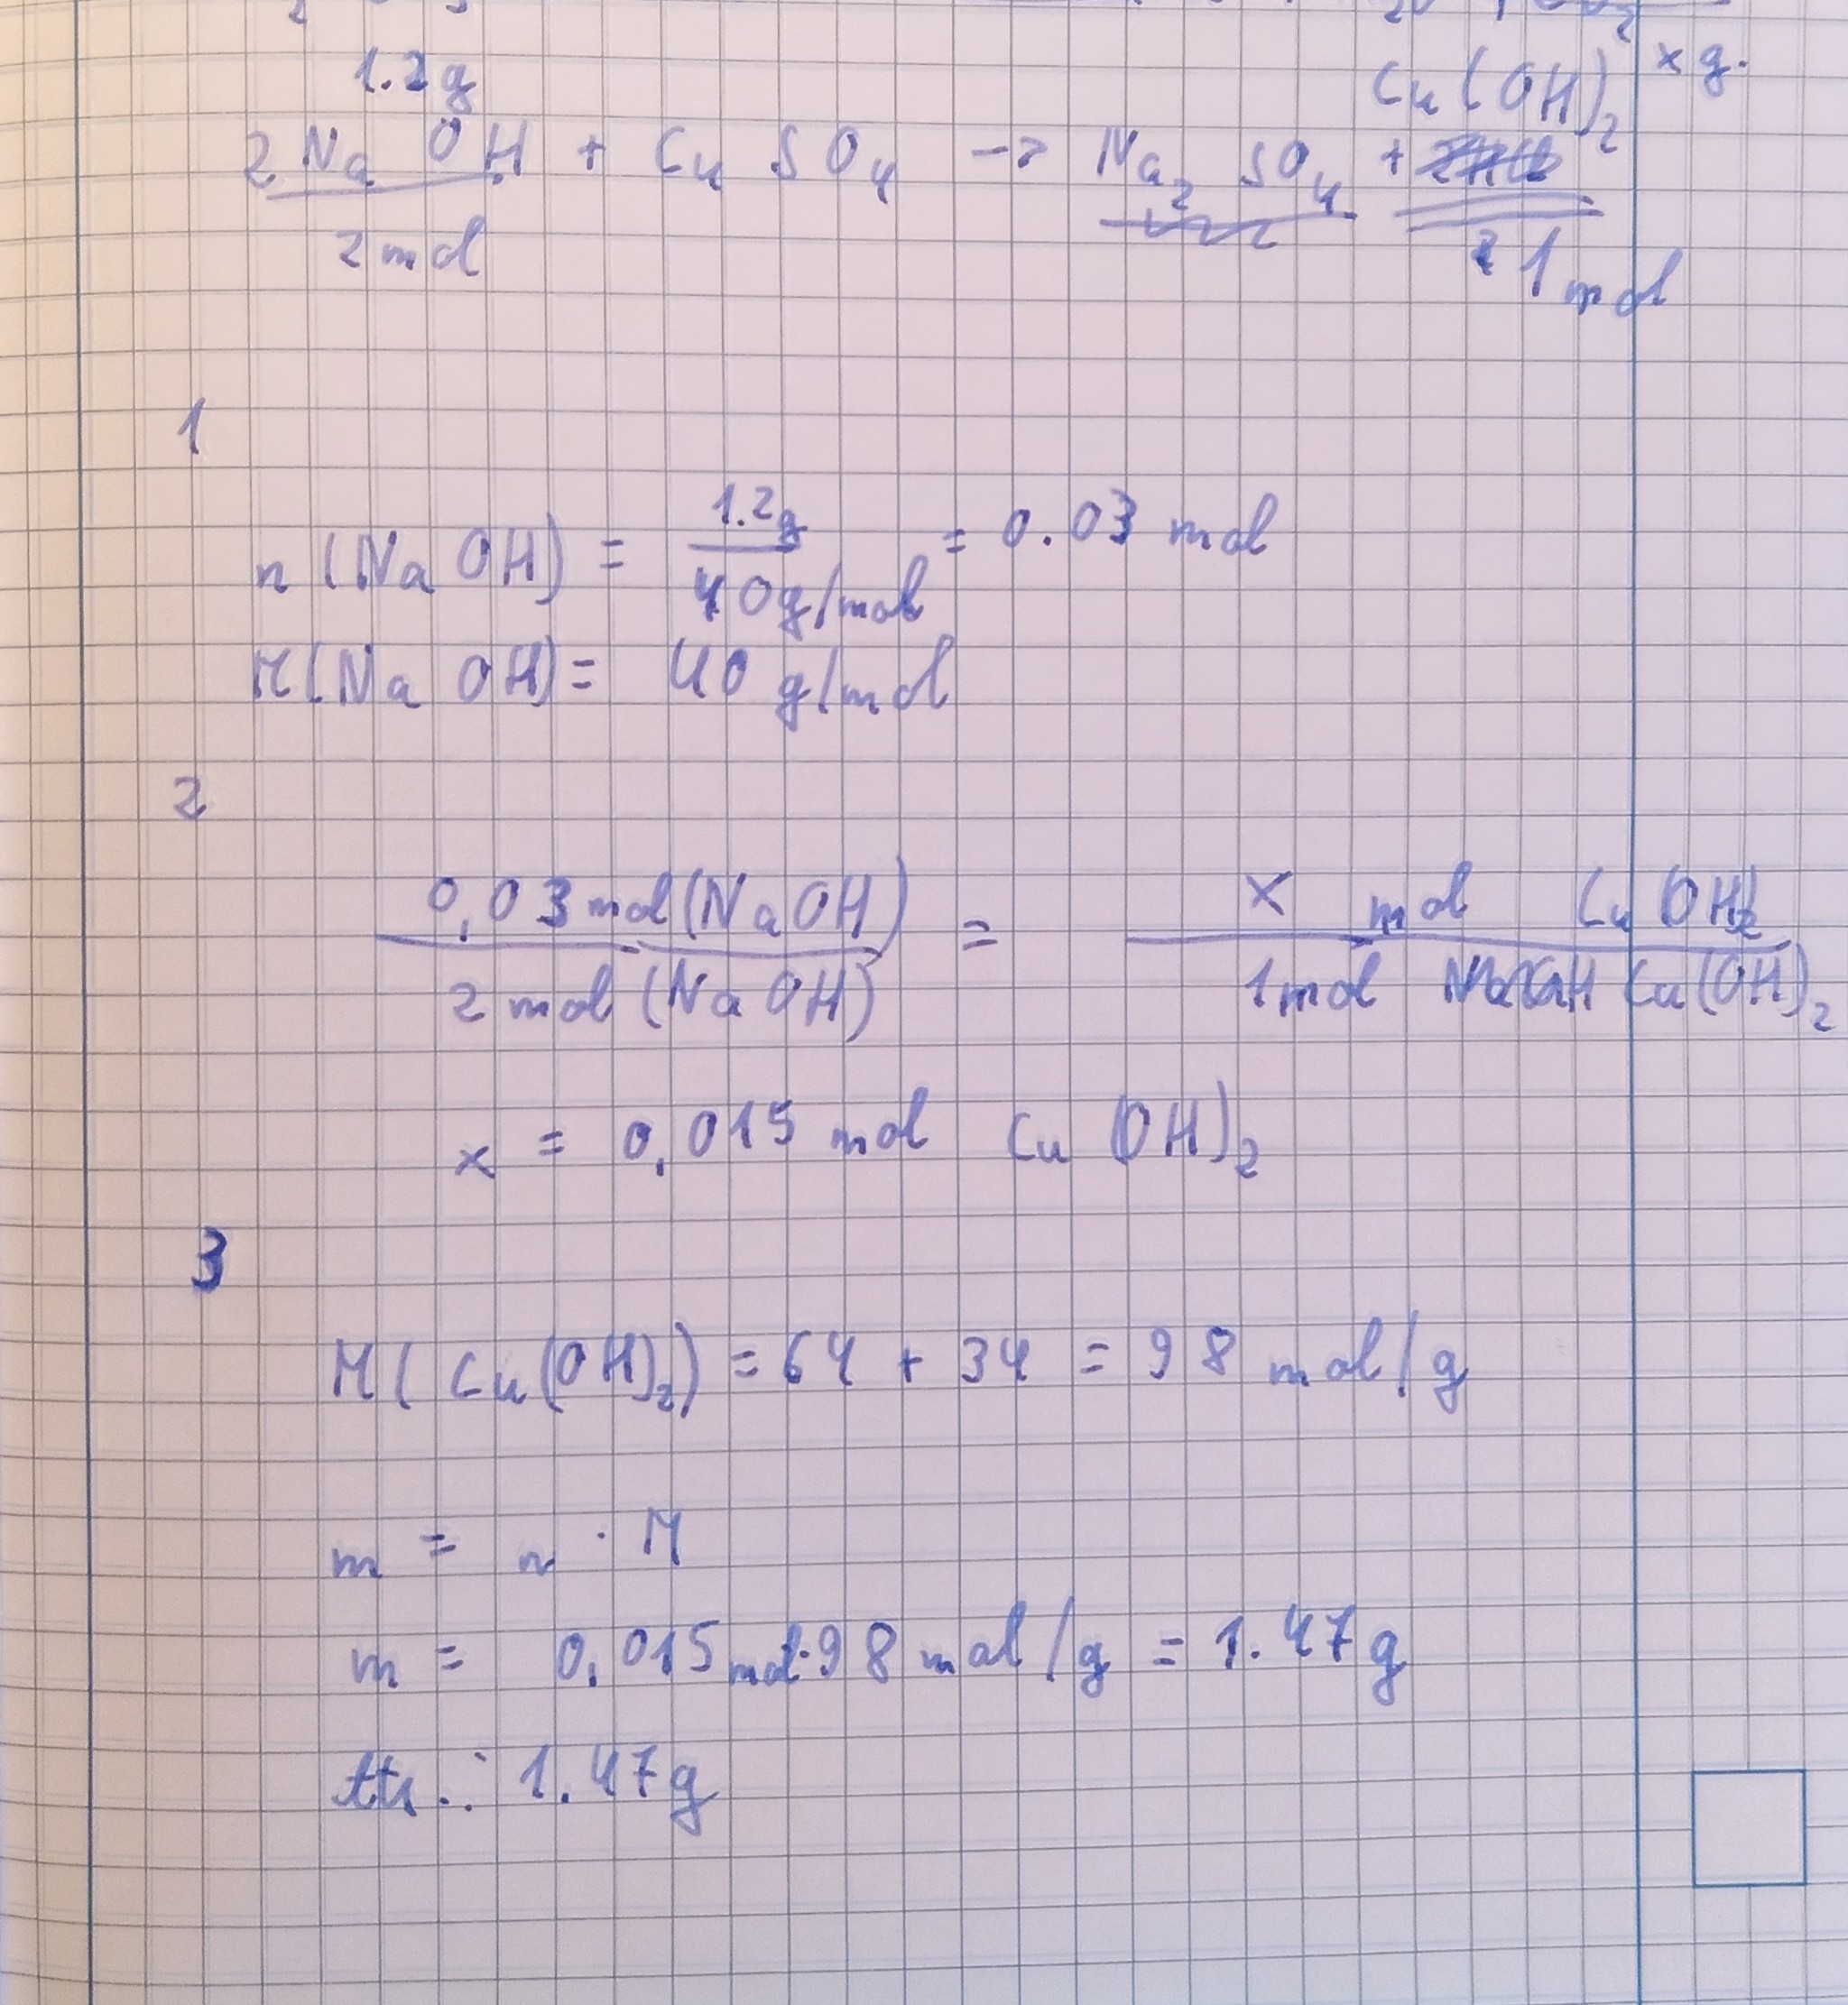 1.2g
Cu(OH)₂ x g.
2NaOH + CuSO₄ -> Na₂SO₄ +
2 mol
1 mol
1
n(NaOH) = 1.2g / 40g/mol = 0.03 mol
M(NaOH) = 40 g/mol
2
0,03 mol(NaOH) / 2 mol(NaOH) = x mol Cu(OH)₂ / 1 mol Cu(OH)₂
x = 0,015 mol Cu(OH)₂
3
M(Cu(OH)₂) = 64 + 34 = 98 mol/g
m = n · M
m = 0,015 mol·98 mol/g = 1.47g
1.47g